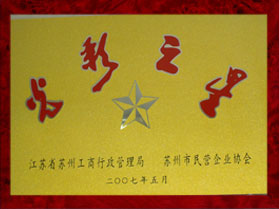 光彩之星
江苏省苏州工商行政管理局 苏州市民营企业协会
二〇〇七年五月